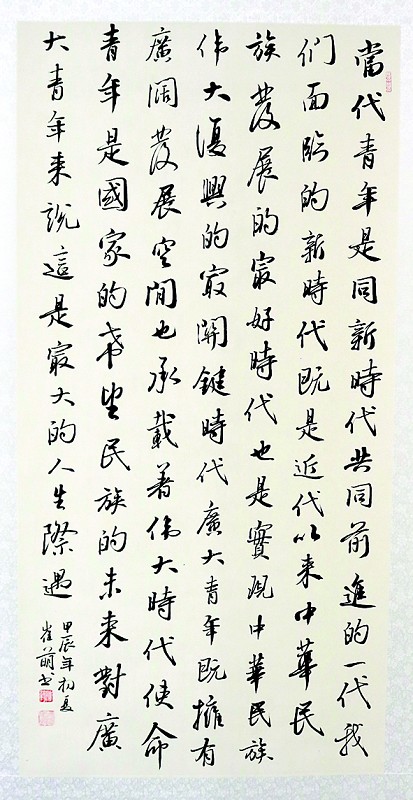 當代青年是同新時代共同前進的一代我
們面臨的新時代既是近代以来中華民
族發展的最好時代也是實現中華民族
偉大復興的最關鍵時代廣大青年既擁有
廣闊發展空间也承載著偉大時代使命
青年是國家的希望民族的未来對廣
大青年来說這是最大的人生際遇
甲辰年初夏
崔萌书